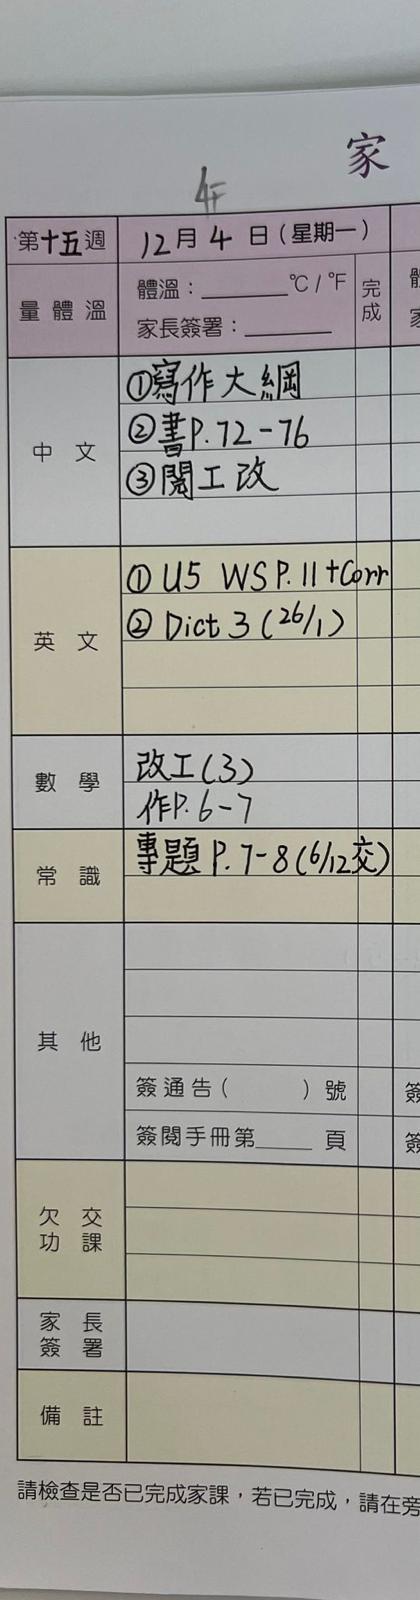 家
第十五週 12月4日(星期一)
量體溫 體溫：______°C/°F 完成
家長簽署：______
中文 ①寫作大綱
②書P.72-76
③閱工改
英文 ① U5 WS P.11+Corr
② Dict 3 (26/1)
數學 改工(3)
作P.6-7
常識 專題 P.7-8(6/12交)
其他
簽通告( )號
簽閱手冊第____頁
欠交功課
家長簽署
備註
請檢查是否已完成家課，若已完成，請在旁